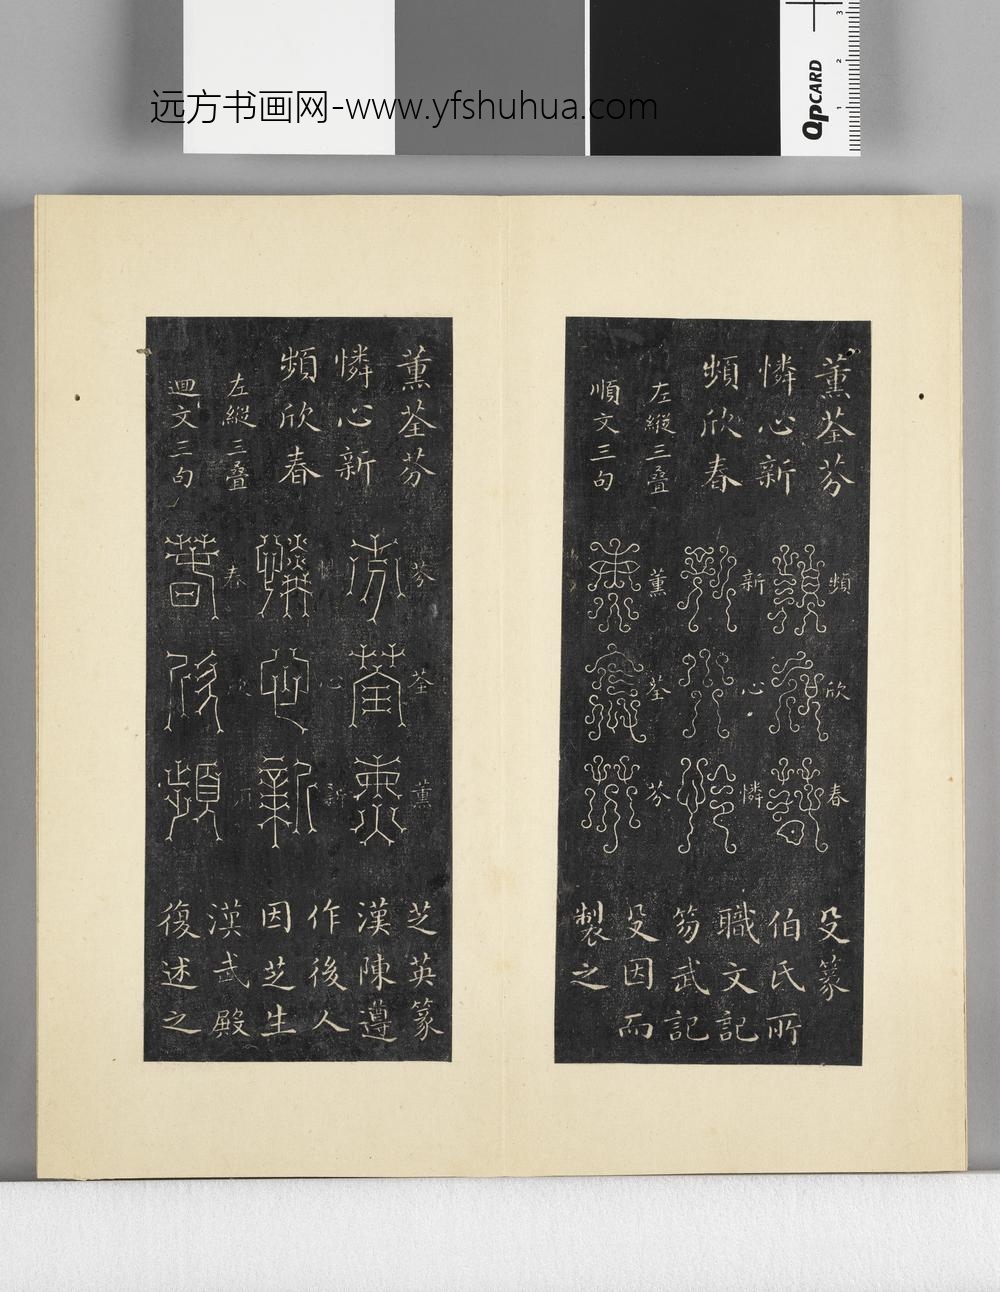 远方书画网-www.yfshuhua.com
QpCARD
1 2 3
薰荃芬
憐心新
頻欣春
左縱三叠
順文三句
頻
欣
春
新
心
憐
薰
荃
芬
殳篆
伯氏所
職文記
笏武記
殳因而
製之
薰荃芬
憐心新
頻欣春
左縱三叠
迴文三句
芬
荃
薰
心
新
春
欣
芝英篆
漢陳遵
作後人
因芝生
漢武殿
復述之